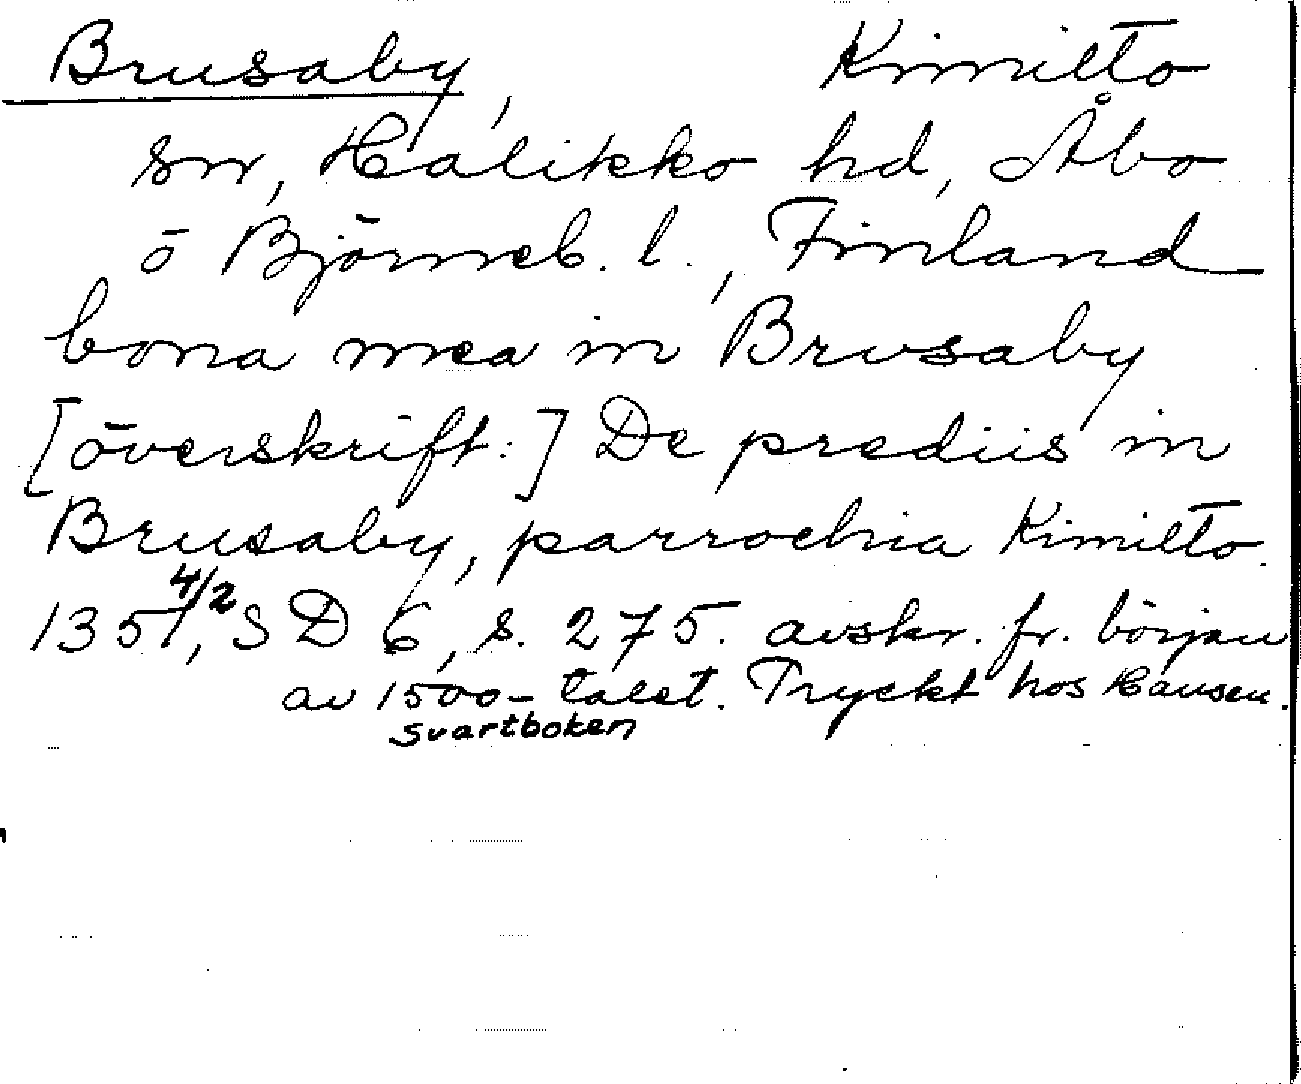 Brusaby, Kimitto
sn, Halikko hd, Åbo
o Björneb. l., Finland
bona mea in Brusaby
[överskrift:] De prediis in
Brusaby, parrochia Kimitto.
1351 4/2, SD 6, s. 275. avskr. fr. början
av 1500-talet. Tryckt hos Hausen.
Svartboken